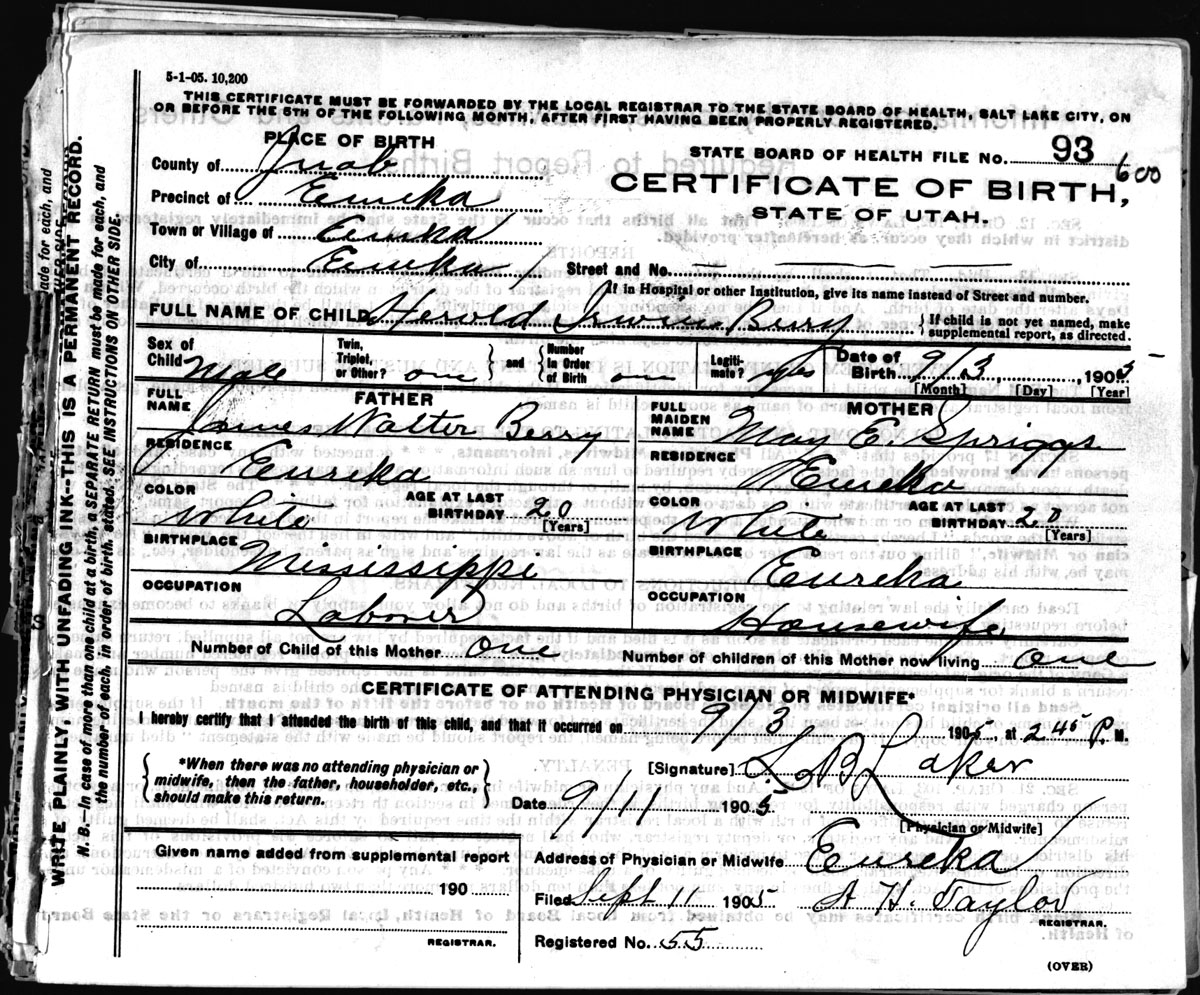 5-1-05. 10,200
THIS CERTIFICATE MUST BE FORWARDED BY THE LOCAL REGISTRAR TO THE STATE BOARD OF HEALTH, SALT LAKE CITY, ON
OR BEFORE THE 5TH OF THE FOLLOWING MONTH, AFTER FIRST HAVING BEEN PROPERLY REGISTERED.
PLACE OF BIRTH
County of Juab
Precinct of Eureka
Town or Village of Eureka
City of Eureka
STATE BOARD OF HEALTH FILE No. 93 600
CERTIFICATE OF BIRTH,
STATE OF UTAH.
Street and No.
If in Hospital or other Institution, give its name instead of Street and number.
FULL NAME OF CHILD Herold Irwin Berry {If child is not yet named, make supplemental report, as directed.
Sex of Child Male Twin, Triplet, or Other? one } and { Number in Order of Birth one Legiti-mate? yes Date of Birth 9/3, 1905
[Month] [Day] [Year]
FATHER
FULL NAME James Walter Berry
RESIDENCE Eureka
COLOR White AGE AT LAST BIRTHDAY 20 [Years]
BIRTHPLACE Mississippi
OCCUPATION Laborer
MOTHER
FULL MAIDEN NAME May E. Spriggs
RESIDENCE Eureka
COLOR White AGE AT LAST BIRTHDAY 20 [Years]
BIRTHPLACE Eureka
OCCUPATION Housewife
Number of Child of this Mother one Number of children of this Mother now living one
CERTIFICATE OF ATTENDING PHYSICIAN OR MIDWIFE*
I hereby certify that I attended the birth of this child, and that it occurred on 9/3 1905, at 2 45 P. M.
{*When there was no attending physician or
midwife, then the father, householder, etc.,
should make this return.}
[Signature] L. B. Laker
Date 9/11 1905
[Physician or Midwife]
Given name added from supplemental report
190
REGISTRAR.
Address of Physician or Midwife Eureka
Filed Sept 11 1905 A. H. Taylor
REGISTRAR.
Registered No. 55
(OVER)
WRITE PLAINLY, WITH UNFADING INK--THIS IS A PERMANENT RECORD.
N. B. In case of more than one child at a birth, a SEPARATE RETURN must be made for each, and
the number of each, in order of birth, stated. SEE INSTRUCTIONS ON OTHER SIDE.